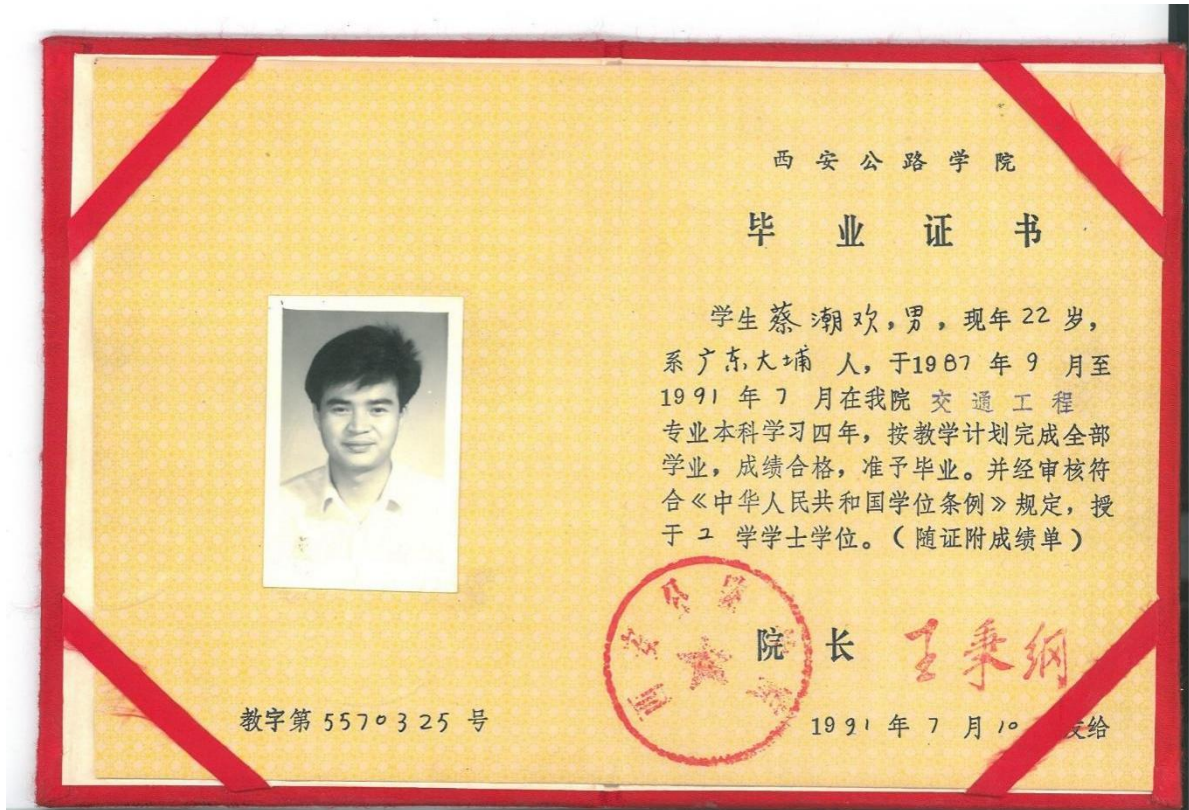 西安公路学院
毕业证书
学生蔡潮欢,男,现年22岁,
系广东大埔人,于1987年9月至
1991年7月在我院交通工程
专业本科学习四年,按教学计划完成全部
学业,成绩合格,准予毕业。并经审核符
合《中华人民共和国学位条例》规定,授
于工学学士学位。(随证附成绩单)
院长 王秉纲
1991年7月10 发给
教字第5570325号
西安公路学院